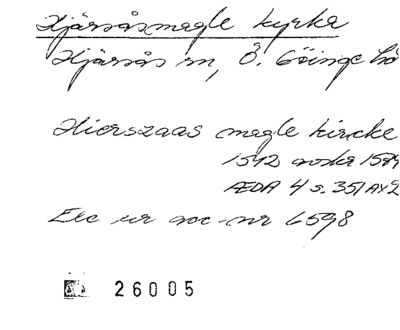 Hjärsåsmagle kyrka
Hjärsås sn, Ö. Göinge hd
Hierszaas magle kircke
1542 avskr 1584
ÆDA 4 s. 351 AX2
Exc ur acc.nr 6598
26005